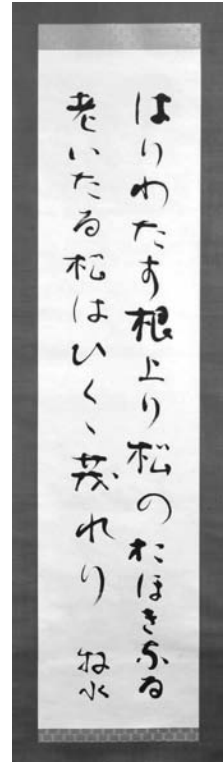 はりわたす根上り松のおほきなる
老いたる松はひくゝ茂れり 牧水